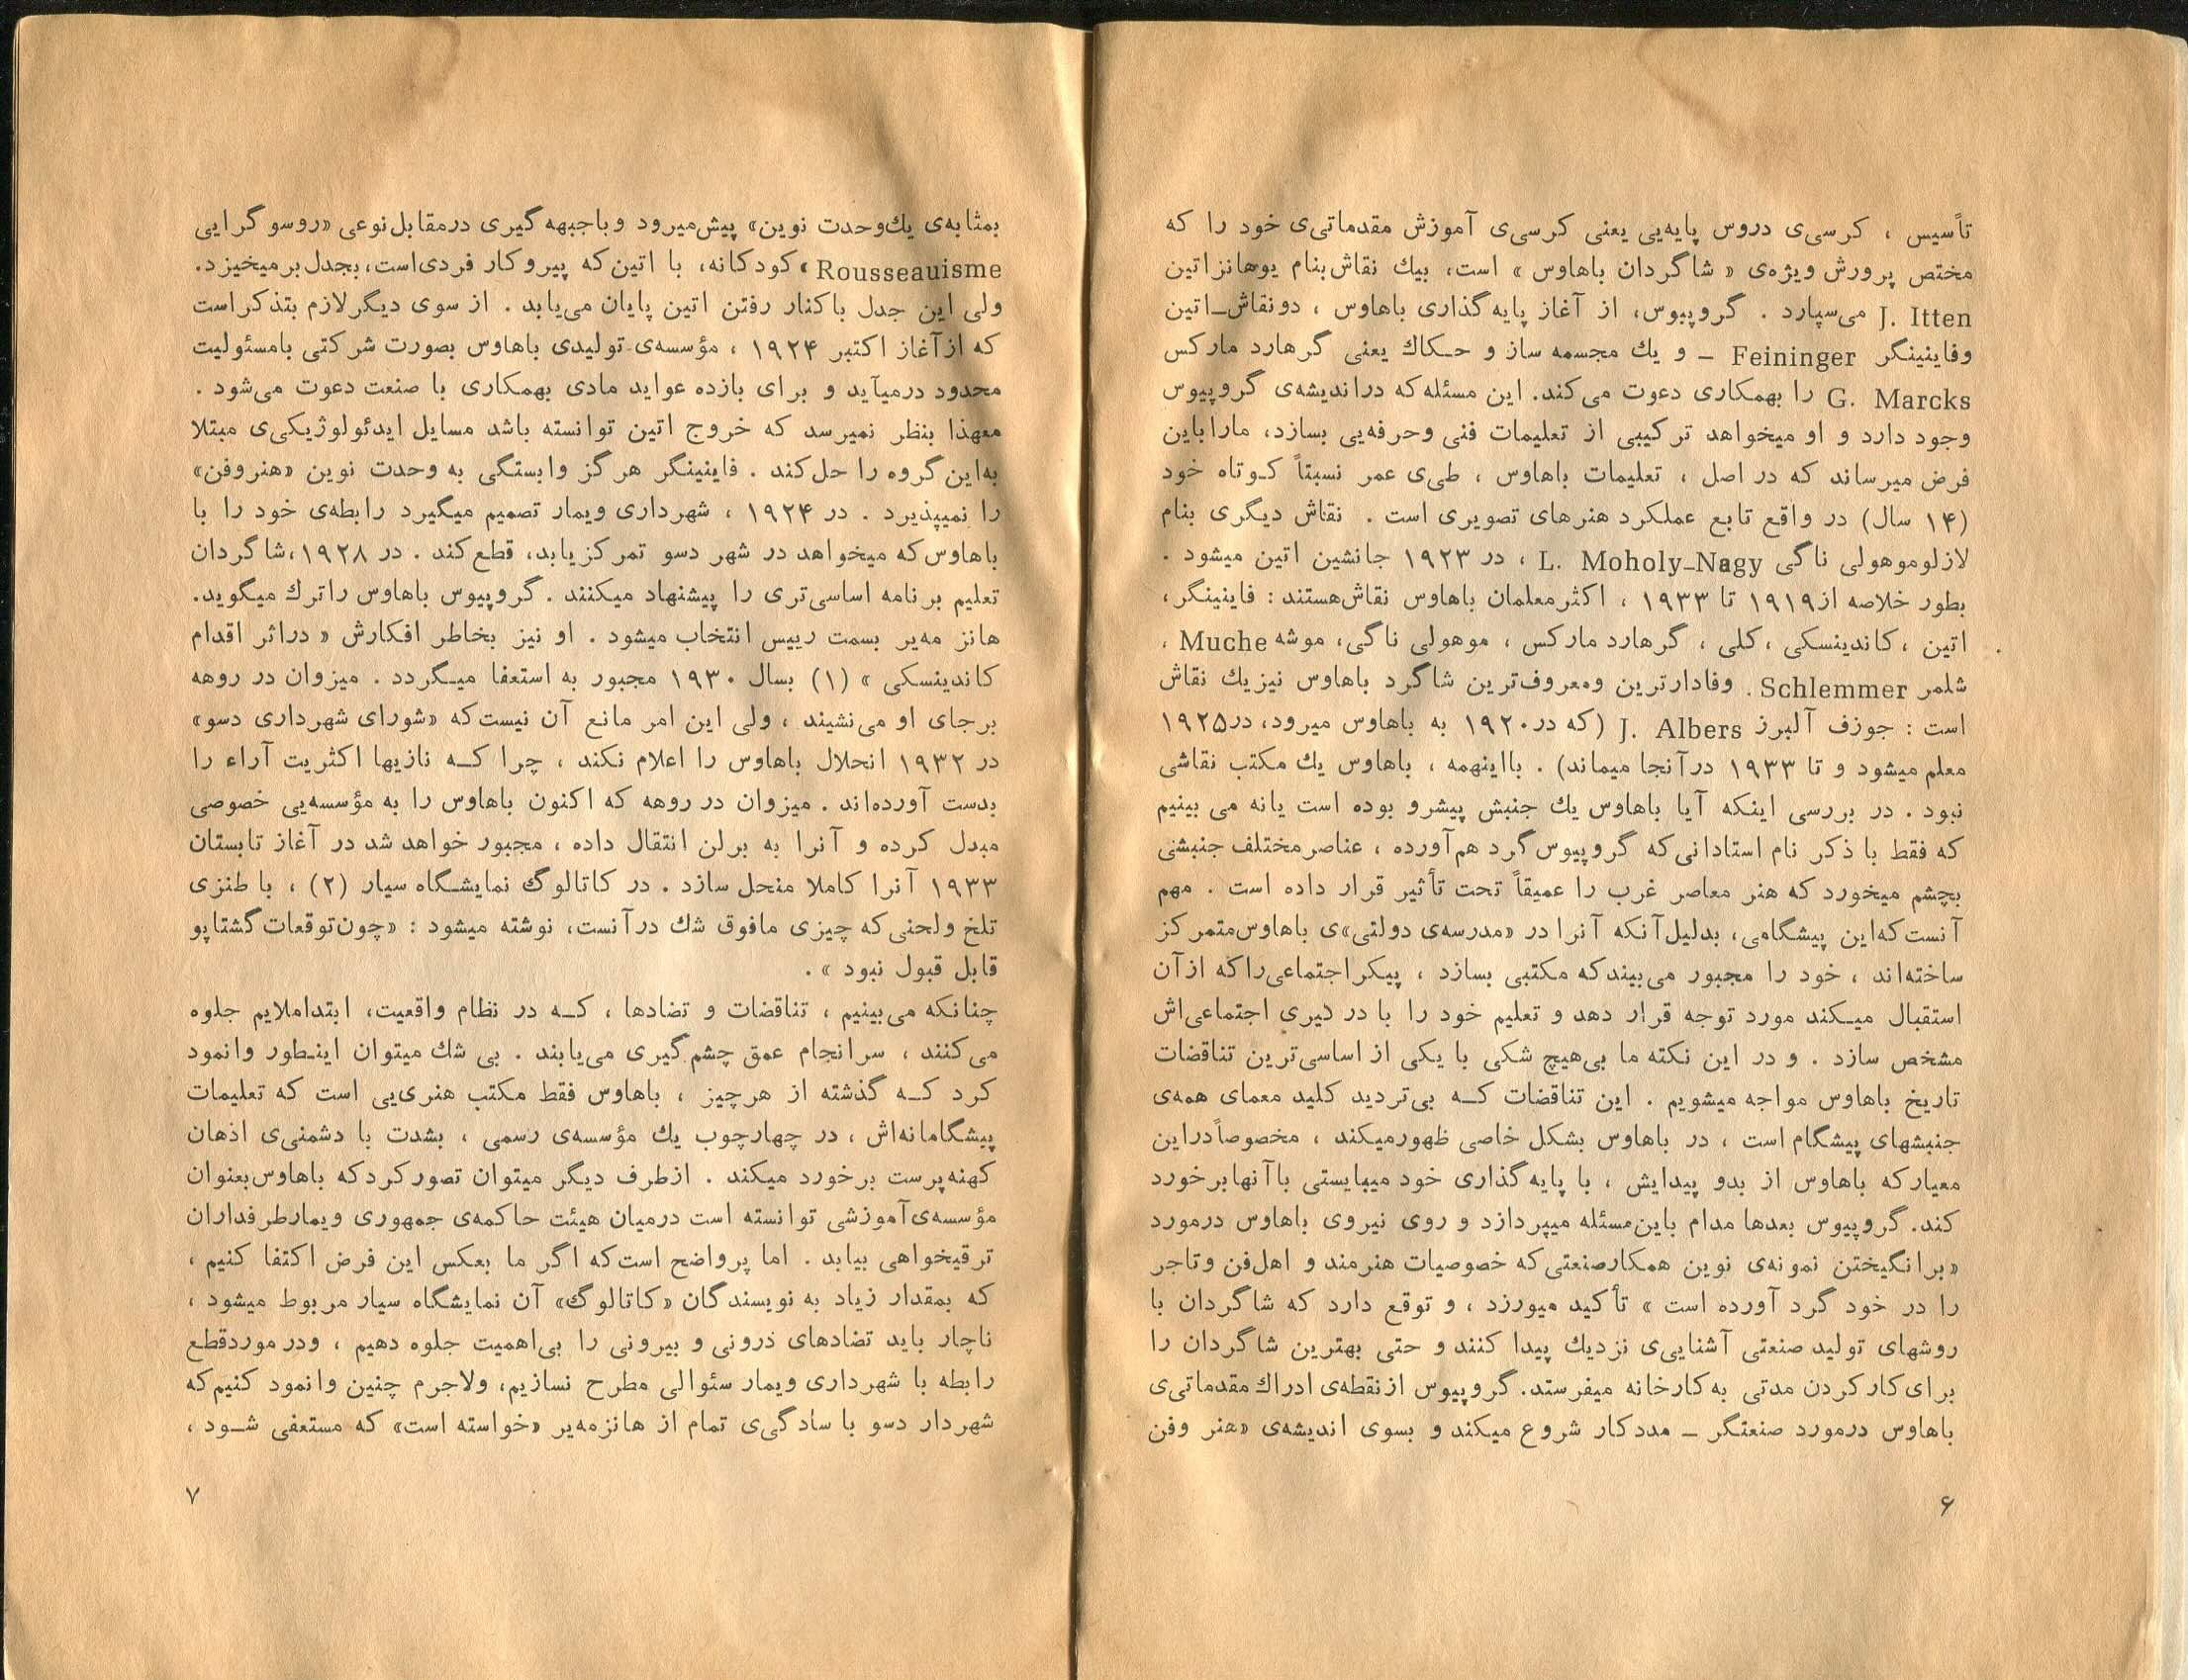 تأسیس ، کرسی‌ی دروس پایه‌یی یعنی کرسی‌ی آموزش مقدماتی‌ی خود را که
مختص پرورش ویژه‌ی « شاگردان باهاوس » است، بیك نقاش بنام یوهانز اتین
J. Itten می‌سپارد . گروپیوس، از آغاز پایه گذاری باهاوس ، دونقاش ـ اتین
وفاینینگر Feininger ـ و یك مجسمه ساز و حـکاك یعنی گرهارد مارکس
G. Marcks را بهمکاری دعوت می‌کند. این مسئله که دراندیشه‌ی گروپیوس
وجود دارد و او میخواهد ترکیبی از تعلیمات فنی وحرفه‌یی بسازد، مارا باین
فرض میرساند که در اصل ، تعلیمات باهاوس ، طی‌ی عمر نسبتاً کـوتاه خود
(۱۴ سال) در واقع تابع عملکرد هنرهای تصویری است . نقاش دیگری بنام
لازلوموهولی ناگی L. Moholy_Nagy ، در ۱۹۲۳ جانشین اتین میشود .
بطور خلاصه از ۱۹۱۹ تا ۱۹۳۳ ، اکثر معلمان باهاوس نقاش هستند : فاینینگر،
اتین ، کاندینسکی ، کلی ، گرهارد مارکس ، موهولی ناگی، موشه Muche ،
شلمر Schlemmer . وفادارترین ومعروف‌ترین شاگرد باهاوس نیز یك نقاش
است : جوزف آلبرز J. Albers (که در ۱۹۲۰ به باهاوس میرود، در ۱۹۲۵
معلم میشود و تا ۱۹۳۳ درآنجا میماند) . بااینهمه ، باهاوس یك مکتب نقاشی
نبود . در بررسی اینکه آیا باهاوس یك جنبش پیشرو بوده است یانه می بینیم
که فقط با ذکر نام استادانی که گروپیوس گرد هم آورده ، عناصر مختلف جنبشی
بچشم میخورد که هنر معاصر غرب را عمیقاً تحت تأثیر قرار داده است . مهم
آنست که این پیشگامی، بدلیل آنکه آنرا در «مدرسه‌ی دولتی»‌ی باهاوس متمرکز
ساخته‌اند ، خود را مجبور می‌بیند که مکتبی بسازد ، پیکر اجتماعی را که از آن
استقبال میـکند مورد توجه قرار دهد و تعلیم خود را با در گیری اجتماعی‌اش
مشخص سازد . و در این نکته ما بی‌هیچ شکی با یکی از اساسی‌ترین تناقضات
تاریخ باهاوس مواجه میشویم . این تناقضات کــه بی‌تردید کلید معمای همه‌ی
جنبشهای پیشگام است ، در باهاوس بشکل خاصی ظهورمیکند ، مخصوصاً دراین
معیار که باهاوس از بدو پیدایش ، با پایه گذاری خود میبایستی باآنها برخورد
کند. گروپیوس بعدها مدام باین مسئله میپردازد و روی نیروی باهاوس درمورد
«برانگیختن نمونه‌ی نوین همکارصنعتی که خصوصیات هنرمند و اهل فن وتاجر
را در خود گرد آورده است » تأکید میورزد ، و توقع دارد که شاگردان با
روشهای تولید صنعتی آشنایی‌ی نزدیك پیدا کنند و حتی بهترین شاگردان را
برای کار کردن مدتی به کارخانه میفرستد. گروپیوس ازنقطه‌ی ادراك مقدماتی‌ی
باهاوس درمورد صنعتگر ـ مددکار شروع میکند و بسوی اندیشه‌ی «هنر وفن
۶
بمثابه‌ی یك‌وحدت نوین» پیش میرود وباجبهه گیری درمقابل نوعی «روسو گرایی
Rousseauisme » کودکانه، با اتین که پیرو کار فردی‌است، بجدل برمیخیزد.
ولی این جدل باکنار رفتن اتین پایان می‌یابد . از سوی دیگر لازم بتذکر است
که از آغاز اکتبر ۱۹۲۴ ، مؤسسه‌ی تولیدی باهاوس بصورت شرکتی بامسئولیت
محدود درمیآید و برای بازده عواید مادی بهمکاری با صنعت دعوت می‌شود .
معهذا بنظر نمیرسد که خروج اتین توانسته باشد مسایل ایدئولوژیکی‌ی مبتلا
به‌این گروه را حل کند . فاینینگر هرگز وابستگی به وحدت نوین «هنروفن»
را نمیپذیرد . در ۱۹۲۴ ، شهرداری ویمار تصمیم میگیرد رابطه‌ی خود را با
باهاوس که میخواهد در شهر دسو تمرکز یابد، قطع کند . در ۱۹۲۸،شاگردان
تعلیم برنامه اساسی‌تری را پیشنهاد میکنند . گروپیوس باهاوس راترك میگوید.
هانز مه‌یر بسمت رییس انتخاب میشود . او نیز بخاطر افکارش « دراثر اقدام
کاندینسکی » (۱) بسال ۱۹۳۰ مجبور به استعفا میـگردد . میزوان در روهه
برجای او می‌نشیند ، ولی این امر مانع آن نیست که «شورای شهرداری دسو»
در ۱۹۳۲ انحلال باهاوس را اعلام نکند ، چرا کــه نازیها اکثریت آراء را
بدست آورده‌اند . میزوان در روهه که اکنون باهاوس را به مؤسسه‌یی خصوصی
مبدل کرده و آنرا به برلن انتقال داده ، مجبور خواهد شد در آغاز تابستان
۱۹۳۳ آنرا کاملا منحل سازد . در کاتالوگ نمایشـگاه سیار (۲) ، با طنزی
تلخ ولحنی که چیزی مافوق شك درآنست، نوشته میشود : «چون توقعات گشتاپو
قابل قبول نبود » .
چنانکه می‌بینیم ، تناقضات و تضادها ، کــه در نظام واقعیت، ابتداملایم جلوه
می‌کنند ، سرانجام عمق چشم گیری می‌یابند . بی شك میتوان اینـطور وانمود
کرد کــه گذشته از هرچیز ، باهاوس فقط مکتب هنری‌یی است که تعلیمات
پیشگامانه‌اش ، در چهارچوب یك مؤسسه‌ی رسمی ، بشدت با دشمنی‌ی اذهان
کهنه‌پرست برخورد میکند . ازطرف دیگر میتوان تصور کرد که باهاوس بعنوان
مؤسسه‌ی آموزشی توانسته است درمیان هیئت حاکمه‌ی جمهوری ویمارطرفداران
ترقیخواهی بیابد . اما پرواضح است که اگر ما بعکس این فرض اکتفا کنیم ،
که بمقدار زیاد به نویسندگان «کاتالوگ» آن نمایشگاه سیار مربوط میشود ،
ناچار باید تضادهای درونی و بیرونی را بی‌اهمیت جلوه دهیم ، ودر موردقطع
رابطه با شهرداری ویمار سئوالی مطرح نسازیم، ولاجرم چنین وانمود کنیم که
شهردار دسو با سادگی‌ی تمام از هانزمه‌یر «خواسته است» که مستعفی شــود ،
۷